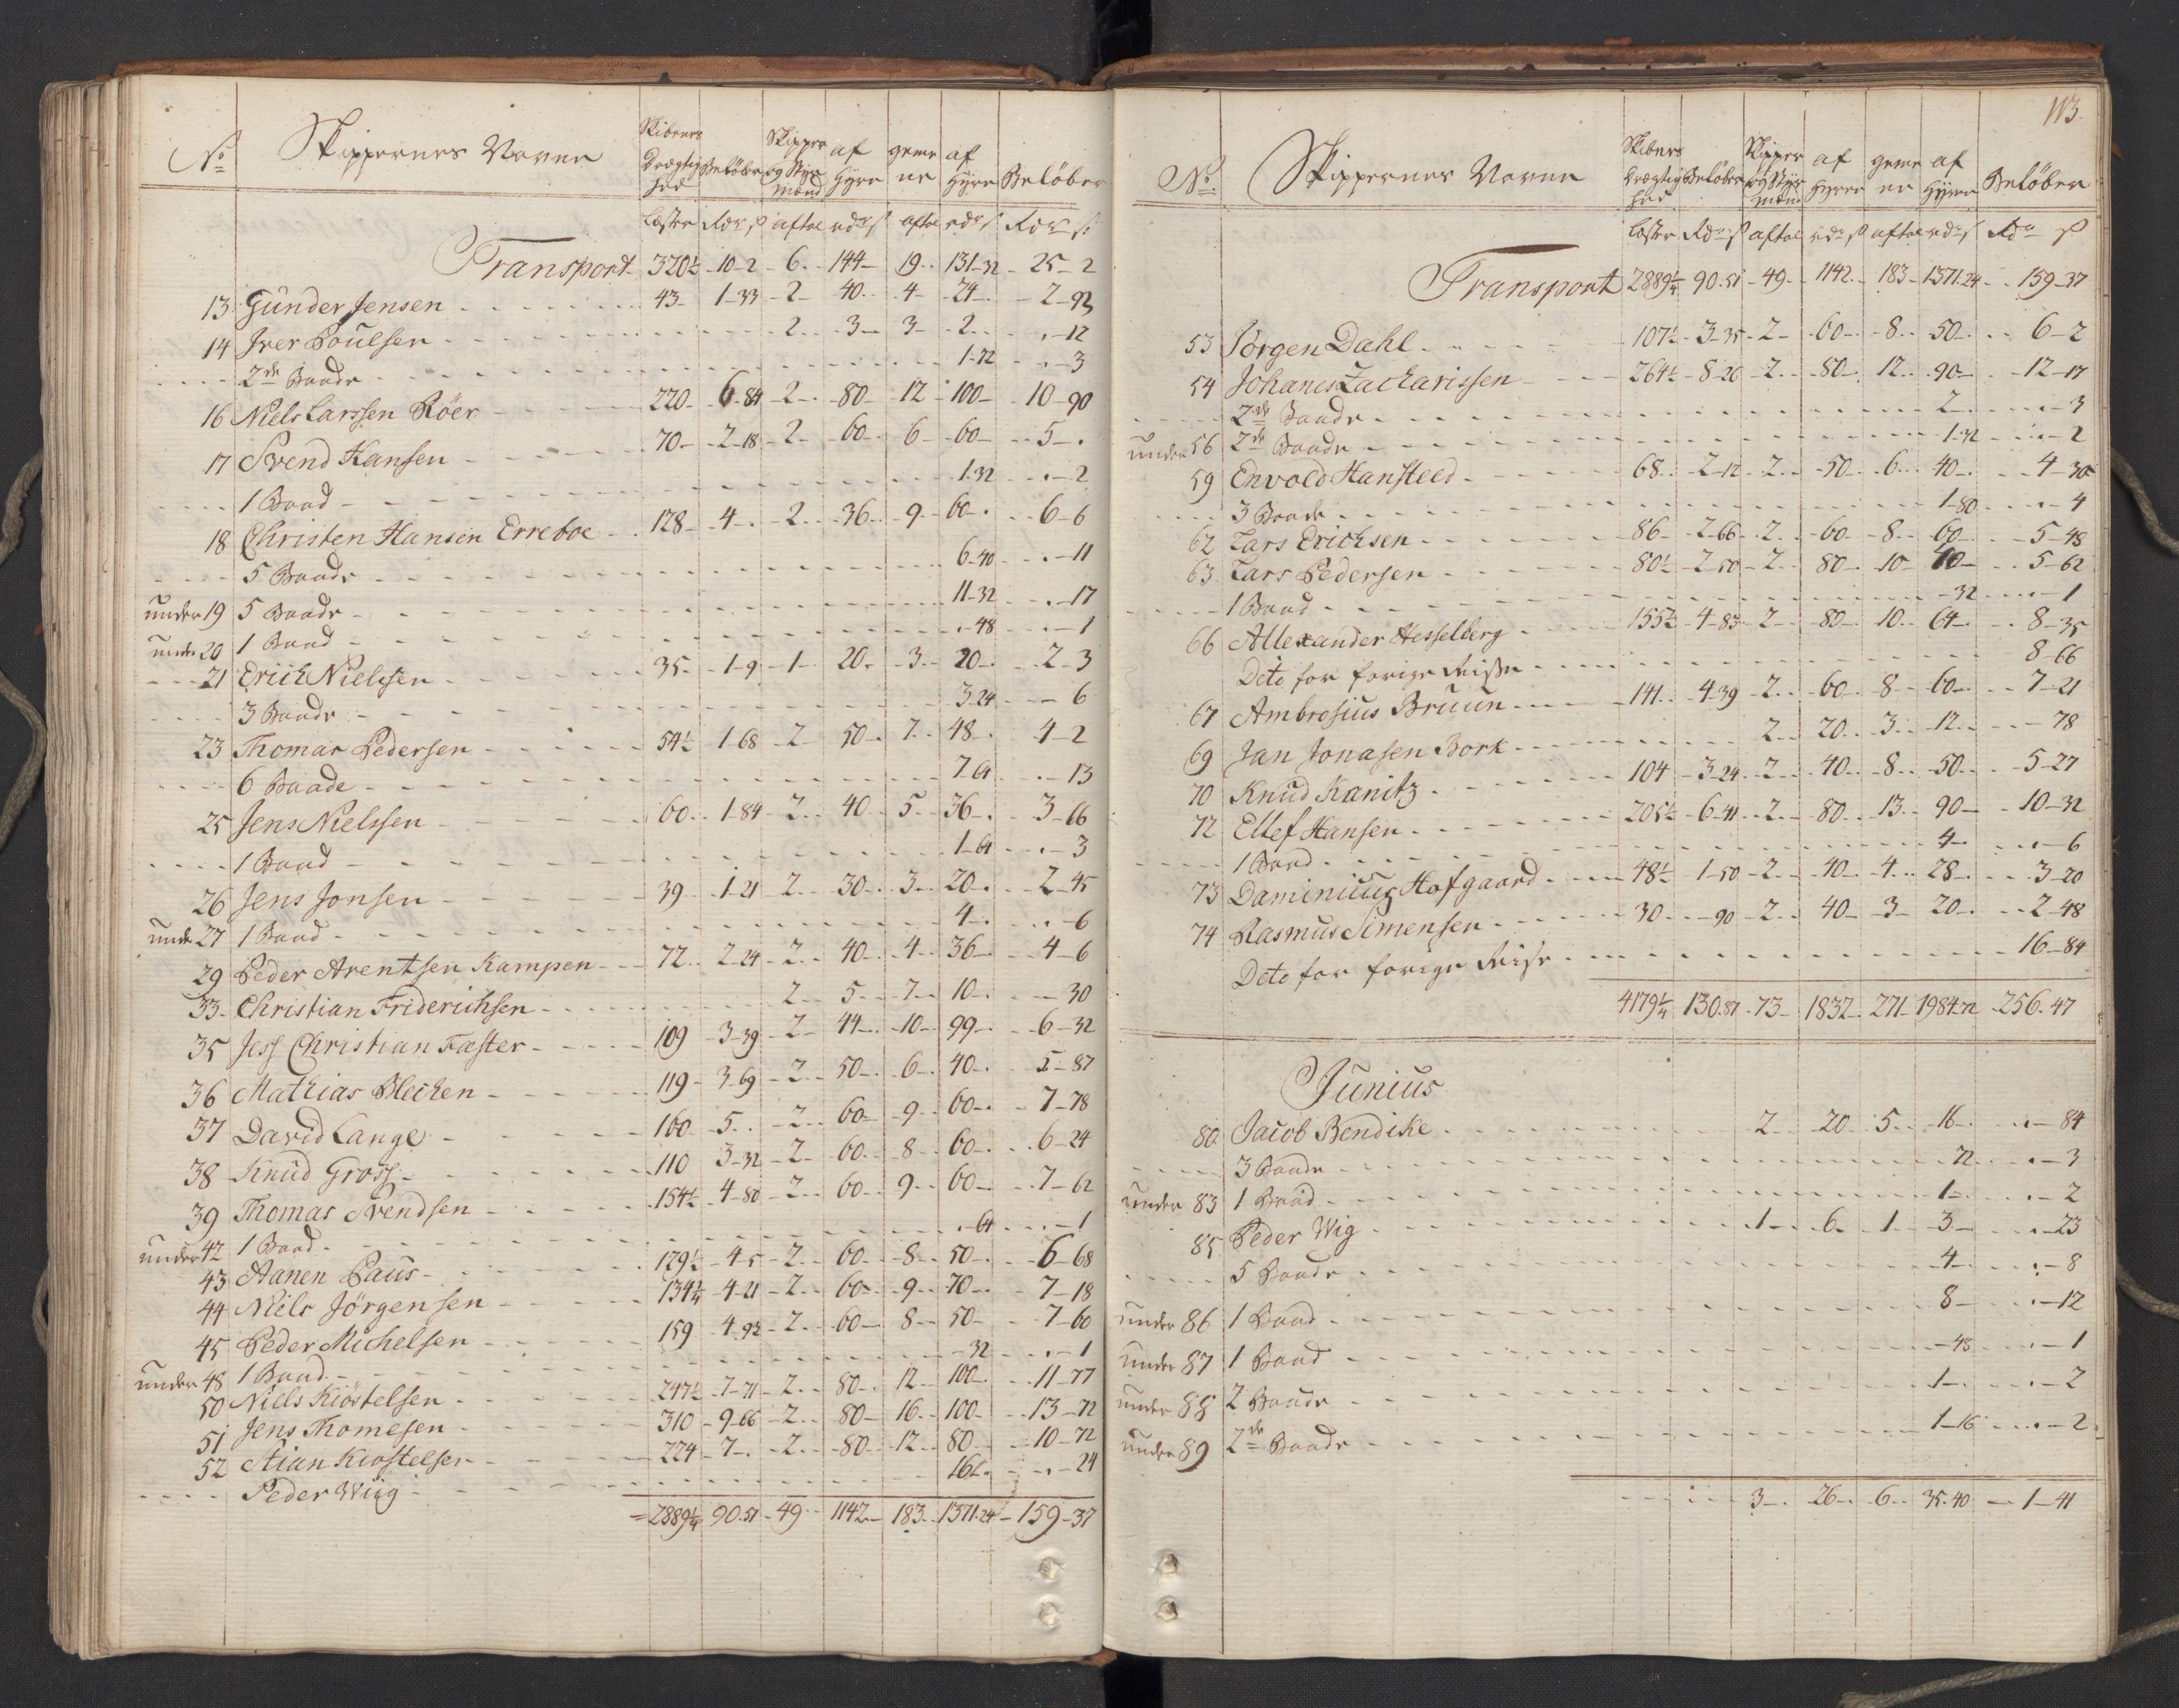 No Skippernes Navne Skibenes Drægtighed Beløber Skippere og Styrmænd af Hyre gemene af Hyre Beløber
Læster Rdr ß aftal rdr ß aftal rdr ß Rdr ß
Transport 320½ 10-2 6 144 19 131-32 25-2
13 Gunder Jensen 43 1-33 2 40 4 24 2-93
14 Iver Poulsen 2 3 3 2 -12
2de Baade 1-72 -3
16 Niels Larssen Röer 220 6-84 2 80 12 100 10-90
17 Svend Hansen 70 2-18 2 60 6 60 5-
1 Baad 1-32 -2
18 Christen Hansen Erreboe 128 4 2 36 9 60 6-6
5 Baade 6-40 -11
under 19 5 Baade 11-32 -17
under 20 1 Baad -48 -1
21 Erich Nielssen 35 1-9 1 20 3 20 2-3
3 Baade 3-24 6
23 Thomas Pedersen 54½ 1-68 2 50 7 48 4-2
6 Baade 7-64 -13
25 Jens Nielssen 60 1-84 2 40 5 36 3-66
1 Baad 1-64 -3
26 Jens Jonsen 39 1-21 2 30 3 20 2-45
under 27 1 Baad 4 -6
29 Peder Arentsen Kampen 72 2-24 2 40 4 36 4-6
33 Christian Friderichsen 2 5 7 10 30
35 Jess Christian Faster 109 3-39 2 44 10 99 6-32
36 Mathias Blecken 119 3-69 2 50 6 40 5-87
37 David Lange 160 5 2 60 9 60 7-78
38 Knud Gross 110 3-32 2 60 8 60 6-24
39 Thomas Svendsen 154½ 4-80 2 60 9 60 7-62
under 42 1 Baad -64 -1
43 Aanen Paus 129½ 4-5 2 60 8 50 6-68
44 Niels Jörgensen 134¾ 4-21 2 60 9 70 7-18
45 Peder Michelsen 159 4-93 2 60 8 50 7-60
under 48 1 Baad 32 -1
50 Niels Kiöstelsen 247½ 7-71 2 80 12 100 11-77
51 Jens Thomesen 310 9-66 2 80 16 100 13-72
52 Stian Kiostelsen 224 7 2 80 12 80 10-72
Peder Wiig 16 -24
2889¼ 90.51 49 1142 183 1371.24 159-37
113
No Skippernes Navne Skibenes Drægtighed Beløber Skipper og Styrmænd af Hyrre gemene af Hyrre Beløber
Læster Rdr ß aftal rdr ß aftal rdr ß Rdr ß
Transport 2889¼ 90.51 49 1142 183 1371.24 159-37
53 Jörgen Dahl 107½ 3-35 2 60 8 50 6-2
54 Johanes Zacharissen 264½ 8-26 2 80 12 90 12-17
2de Baade 2 -3
under 56 2de Baade 1-32 -2
59 Envold Hansteed 68 2-12 2 50 6 40 4-30
3 Baade 1-80 -4
62 Lars Erichsen 86 2-66 2 60 8 60 5-48
63 Lars Pedersen 80½ 2-50 2 80 10 40 5-62
1 Baad -32 -1
66 Allexander Hesselberg 155½ 4-83 2 80 10 64 8-35
Deto for forige Reise 8-66
67 Ambrosius Bruun 141 4-39 2 60 8 60 7-21
69 Jan Jonasen Bork 2 20 3 12 78
70 Knud Kanitz 104 3-24 2 40 8 50 5-27
72 Ellef Hansen 205½ 6-41 2 80 13 90 10-32
1 Baad 4 -6
73 Daminicus Hofgaard 48½ 1-50 2 40 4 28 3-20
74 Rasmus Simensen 30 -90 2 40 3 20 2-48
Deto for forige Reise 16-84
4179¼ 130.87 73 1832 271 1984.72 256.47
Junius
80 Jacob Bendike 2 20 5 16 -84
3 Baade 72 -3
under 83 1 Baad 1 -2
85 Peder Wig 1 6 1 3 -23
5 Baade 4 -8
under 86 1 Baad 8 -12
under 87 1 Baad -48 -1
under 88 2 Baade 1 -2
under 89 2de Baade 1-16 -2
3 26 6 35.40 1-41